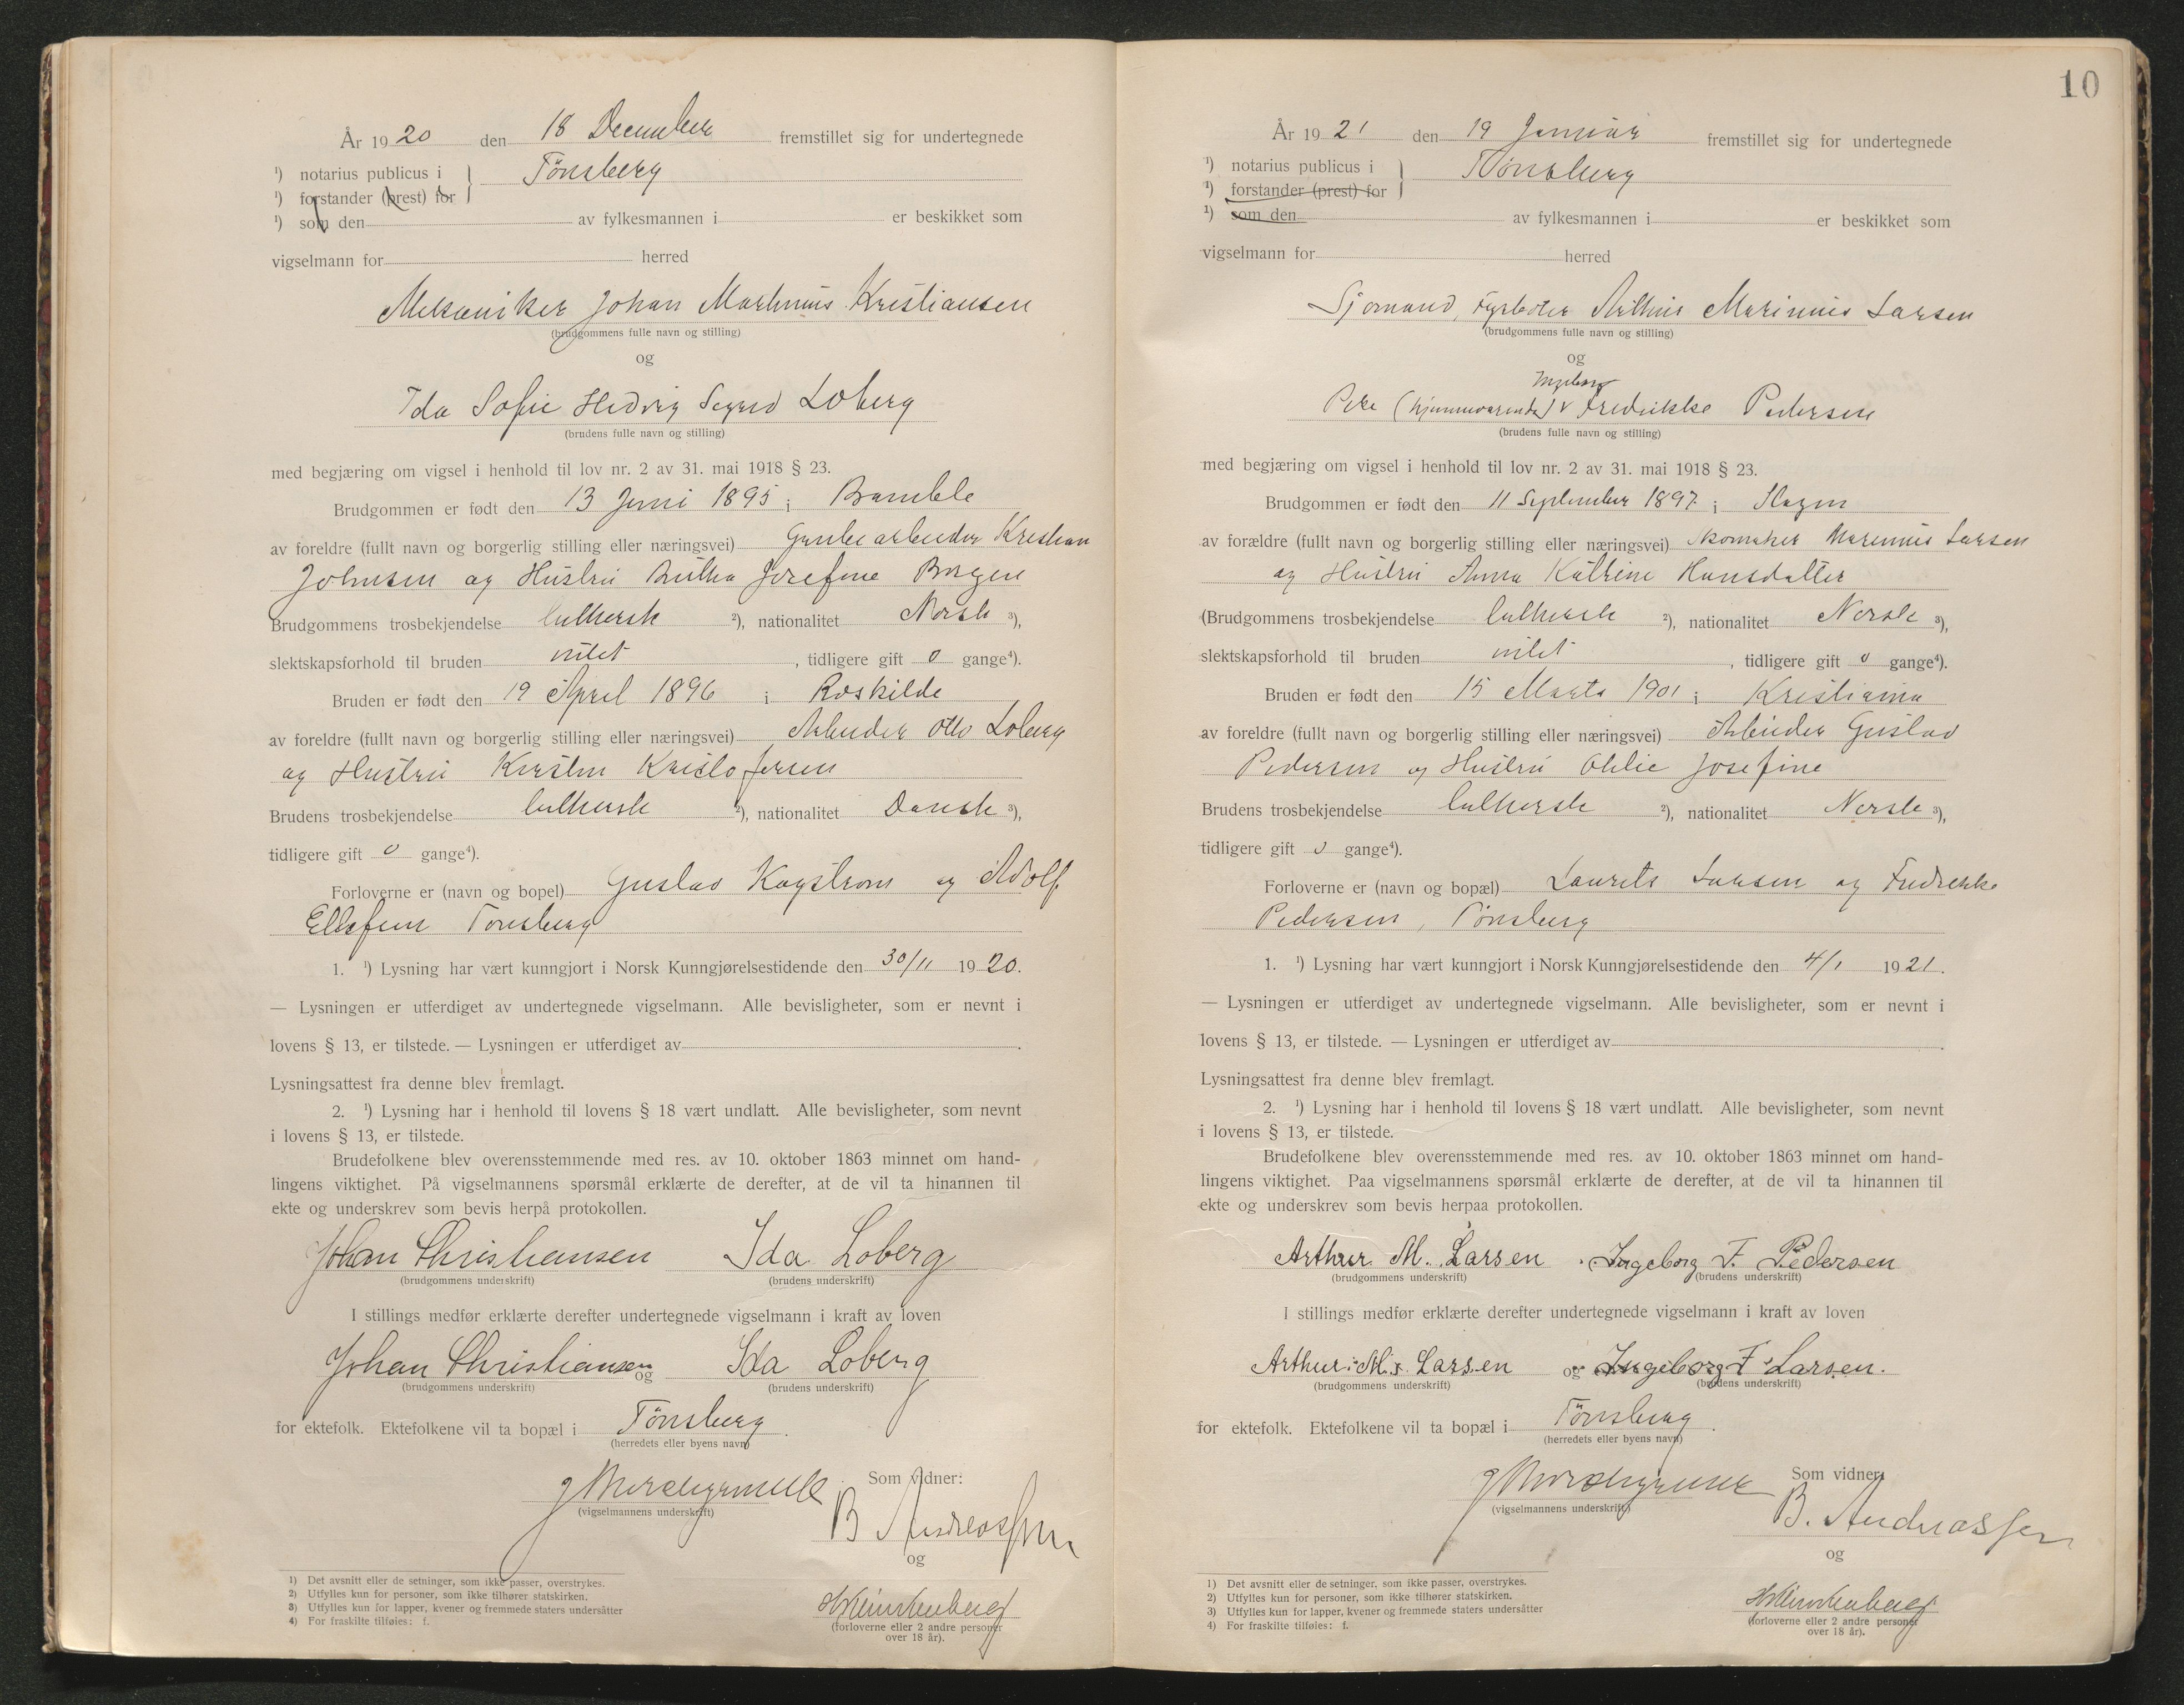 År 1920 den 18 December fremstillet sig for undertegnede
¹) notarius publicus i Tönsberg
¹) forstander (prest) for
¹) som den av fylkesmannen i er beskikket som
vigselmann for herred
Mekaniker Johan Marhinius Kristiansen
(brudgommens fulle navn og stilling)
og
Ida Sofie Hedvig Sigrid Loberg
(brudens fulle navn og stilling)
med begjæring om vigsel i henhold til lov nr. 2 av 31. mai 1918 § 23.
Brudgommen er født den 13 Juni 1895 i Bamble
av foreldre (fullt navn og borgerlig stilling eller næringsvei) Grubearbeider Kristian
Johnsen og Hustru Josefine Borgen
Brudgommens trosbekjendelse luthersk ²), nationalitet Norsk ³),
slektskapsforhold til bruden intet, tidligere gift 0 gange⁴).
Bruden er født den 19 April 1896 i Roskilde
av foreldre (fullt navn og borgerlig stilling eller næringsvei) Arbeider Otto Loberg
og Hustru Kirstin Kristofersen
Brudens trosbekjendelse luthersk ²), nationalitet Dansk ³),
tidligere gift 0 gange⁴).
Forloverne er (navn og bopel) Gustav Kagstrom og Adolf
Ellefsen Tönsberg
1. ¹) Lysning har vært kunngjort i Norsk Kunngjørelsestidende den 30/11 1920.
— Lysningen er utferdiget av undertegnede vigselmann. Alle bevisligheter, som er nevnt i
lovens § 13, er tilstede. — Lysningen er utferdiget av .
Lysningsattest fra denne blev fremlagt.
2. ¹) Lysning har i henhold til lovens § 18 vært undlatt. Alle bevisligheter, som nevnt
i lovens § 13, er tilstede.
Brudefolkene blev overensstemmende med res. av 10. oktober 1863 minnet om hand-
lingens viktighet. På vigselmannens spørsmål erklærte de derefter, at de vil ta hinannen til
ekte og underskrev som bevis herpå protokollen.
Johan Christiansen Ida Loberg
(brudgommens underskrift) (brudens underskrift)
I stillings medfør erklærte derefter undertegnede vigselmann i kraft av loven
Johan Christiansen og Ida Loberg
(brudgommens underskrift) (brudens underskrift)
for ektefolk. Ektefolkene vil ta bopæl i Tönsberg.
(herredets eller byens navn)
Som vidner:
(vigselmannens underskrift)
B Andreassen
og
(forloverne eller 2 andre personer
over 18 år).
1) Det avsnitt eller de setninger, som ikke passer, overstrykes.
2) Utfylles kun for personer, som ikke tilhører statskirken.
3) Utfylles kun for lapper, kvener og fremmede staters undersåtter
4) For fraskilte tilføies: f.
10
År 1921 den 19 Januar fremstillet sig for undertegnede
¹) notarius publicus i Tönsberg
¹) forstander (prest) for
¹) som den av fylkesmannen i er beskikket som
vigselmann for herred
Sjömand, Fyrböter Arthur Marinius Larsen
(brudgommens fulle navn og stilling)
og
Ingeborg
Pike (hjemmeværende) v Fredrikke Pedersen
(brudens fulle navn og stilling)
med begjæring om vigsel i henhold til lov nr. 2 av 31. mai 1918 § 23.
Brudgommen er født den 11 September 1897 i Slagen
av forældre (fullt navn og borgerlig stilling eller næringsvei) Skomaker Marinius Larsen
og Hustru Anna Katrine Hansdatter
(Brudgommens trosbekjendelse luthersk ²), nationalitet Norsk ³),
slektskapsforhold til bruden intet, tidligere gift 0 gange⁴).
Bruden er født den 15 Marts 1901 i Kristiania
av foreldre (fullt navn og borgerlig stilling eller næringsvei) Arbeider Gustav
Pedersen og Hustru Othlie Josefine
Brudens trosbekjendelse luthersk ²), nationalitet Norsk ³),
tidligere gift 0 gange⁴).
Forloverne er (navn og bopæl) Laurits Larsen og Fredrikke
Pedersen, Tönsberg
1. ¹) Lysning har vært kunngjort i Norsk Kunngjørelsestidende den 4/1 1921.
— Lysningen er utferdiget av undertegnede vigselmann. Alle bevisligheter, som er nevnt i
lovens § 13, er tilstede. — Lysningen er utferdiget av .
Lysningsattest fra denne blev fremlagt.
2. ¹) Lysning har i henhold til lovens § 18 vært undlatt. Alle bevisligheter, som nevnt
i lovens § 13, er tilstede.
Brudefolkene blev overensstemmende med res. av 10. oktober 1863 minnet om hand-
lingens viktighet. Paa vigselmannens spørsmål erklærte de derefter, at de vil ta hinannen til
ekte og underskrev som bevis herpaa protokollen.
Arthur M. Larsen Ingeborg F. Pedersen
(brudgommens underskrift) (brudens underskrift)
I stillings medfør erklærte derefter undertegnede vigselmann i kraft av loven
Arthur M. Larsen og Ingeborg F Larsen.
(brudgommens underskrift) (brudens underskrift)
for ektefolk. Ektefolkene vil ta bopæl i Tönsberg.
(herredets eller byens navn)
Som vidner:
(vigselmannens underskrift)
B. Andreassen
og
(forloverne eller 2 andre personer
over 18 år).
1) Det avsnitt eller de setninger, som ikke passer, overstrykes.
2) Utfylles kun for personer, som ikke tilhører statskirken.
3) Utfylles kun for lapper, kvener og fremmede staters undersåtter
4) For fraskilte tilføies: f.